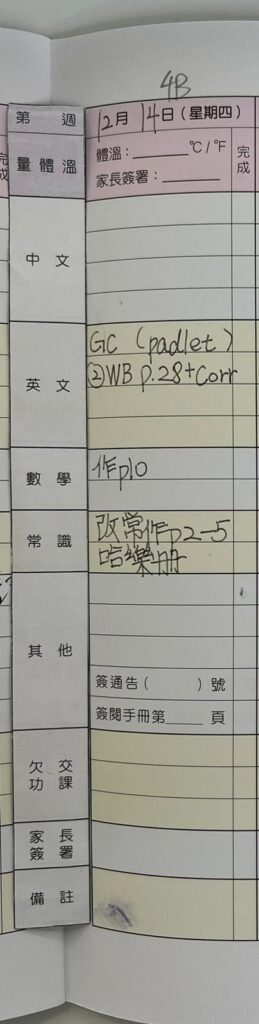 4B
第 週
12月 14日(星期四)
量體溫
體溫:______℃/℉
家長簽署:______
完成
中文
英文
GC (padlet)
②WB p.28+Corr
數學
作p10
常識
改常作p2-5
哈樂册
其他
簽通告( )號
簽閱手冊第____頁
欠交功課
家長簽署
備註